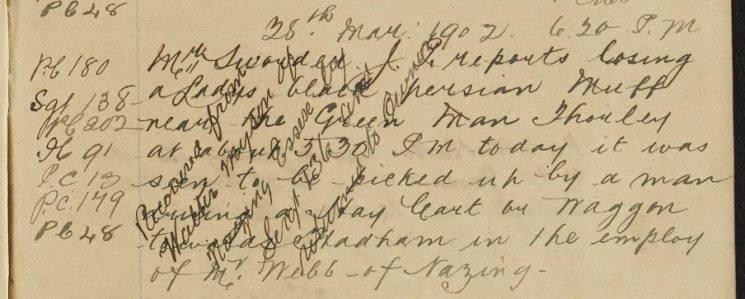 PC 48
28th Mar. 1902. 6.20 P.M
PC 180 Mrs Sworder. J.P. reports losing
Sgt 138 - a Ladys black Persian Muff
PC 202 - near the Green Man Thorley
PC 91 at about 3.30 P.M today it was
P.C 13 seen to be picked up by a man
P.C. 179 driving a Hay Cart or Waggon
PC 48 towards Hadham in the employ
of Mr Webb - of Nazing -
Recovered from
Walter of
Nazing Essex by
Sergt 36 and
returned to owner